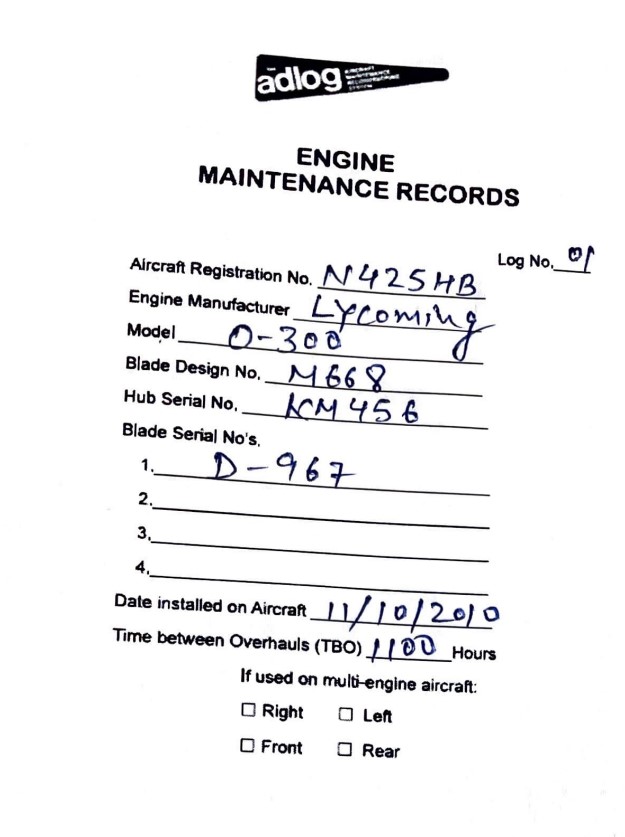 THE
adlog AIRCRAFT
MAINTENANCE
RECORDKEEPING
SYSTEM
ENGINE
MAINTENANCE RECORDS
Log No. 01
Aircraft Registration No. N425HB
Engine Manufacturer Lycoming
Model O-300
Blade Design No. M668
Hub Serial No. KM456
Blade Serial No's.
1. D-967
2.
3.
4.
Date installed on Aircraft 11/10/2010
Time between Overhauls (TBO) 1100 Hours
If used on multi-engine aircraft:
☐ Right ☐ Left
☐ Front ☐ Rear